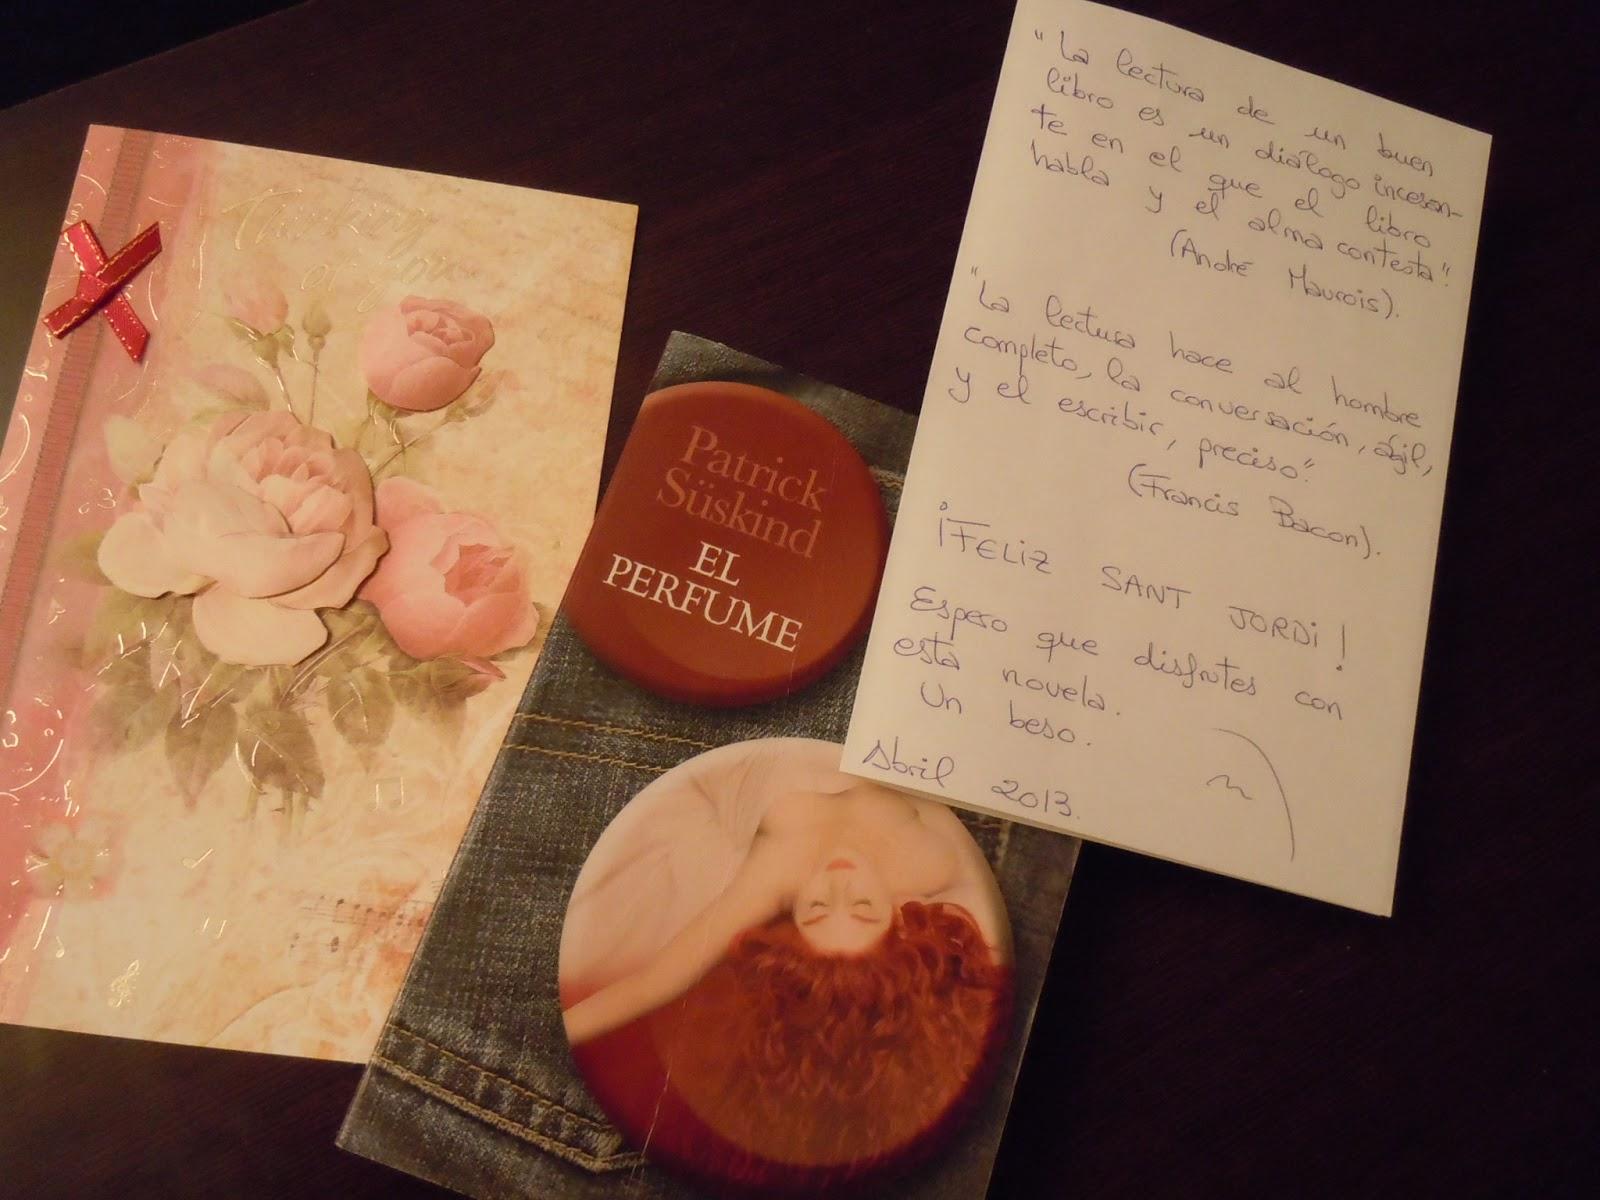 Thinking
of You
Patrick
Süskind
EL
PERFUME
"La lectura de un buen
libro es un diálogo incesan-
te en el que el libro
habla y el alma contesta".
(André Maurois).
"La lectura hace al hombre
completo, la conversación, ágil,
y el escribir, preciso".
(Francis Bacon).
¡FELIZ SANT JORDI!
Espero que disfrutes con
esta novela.
Un beso.
Abril 2013.